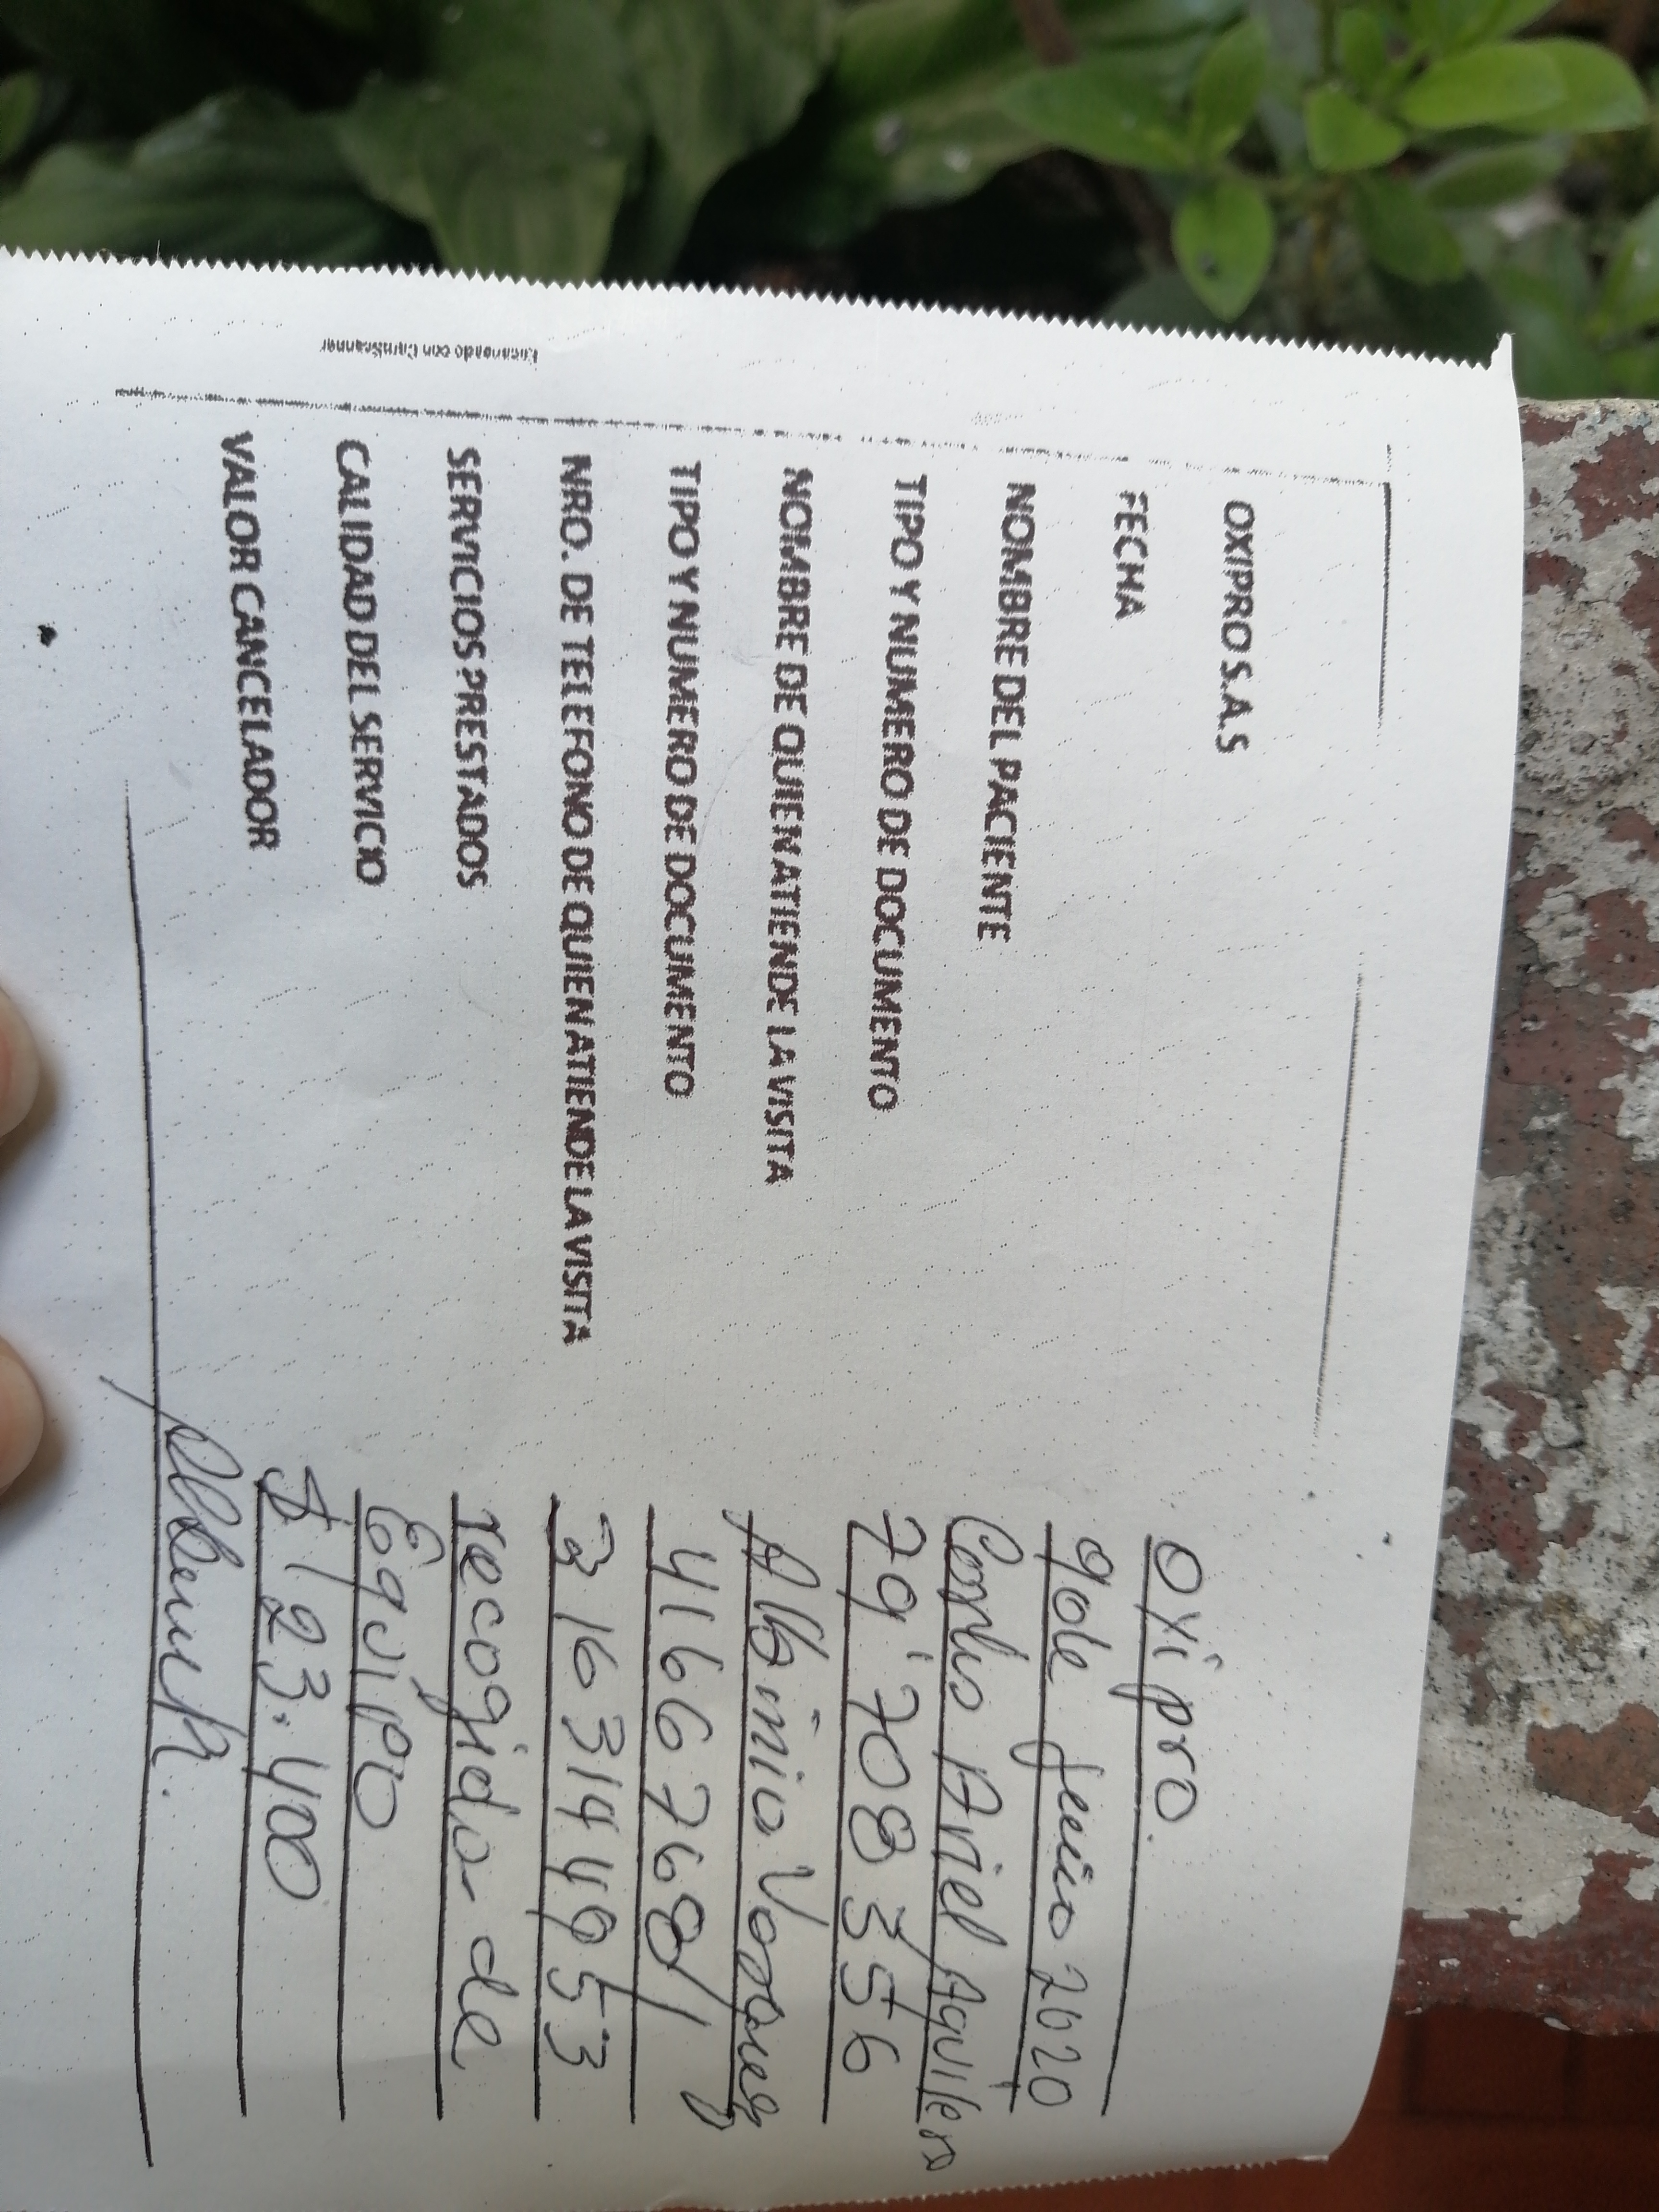 OXIPRO S.A.S Oxipro.
FECHA 9 de Junio 2020
NOMBRE DEL PACIENTE Carlos Ariel Aguilera
TIPO Y NUMERO DE DOCUMENTO 79'708356
NOMBRE DE QUIEN ATIENDE LA VISITA Albinio
TIPO Y NUMERO DE DOCUMENTO 41667681
NRO. DE TELEFONO DE QUIEN ATIENDE LA VISITA 3163144953
SERVICIOS PRESTADOS recogida de
CALIDAD DEL SERVICIO Equipo
VALOR CANCELADOR $ 123.400
Escaneado con CamScanner